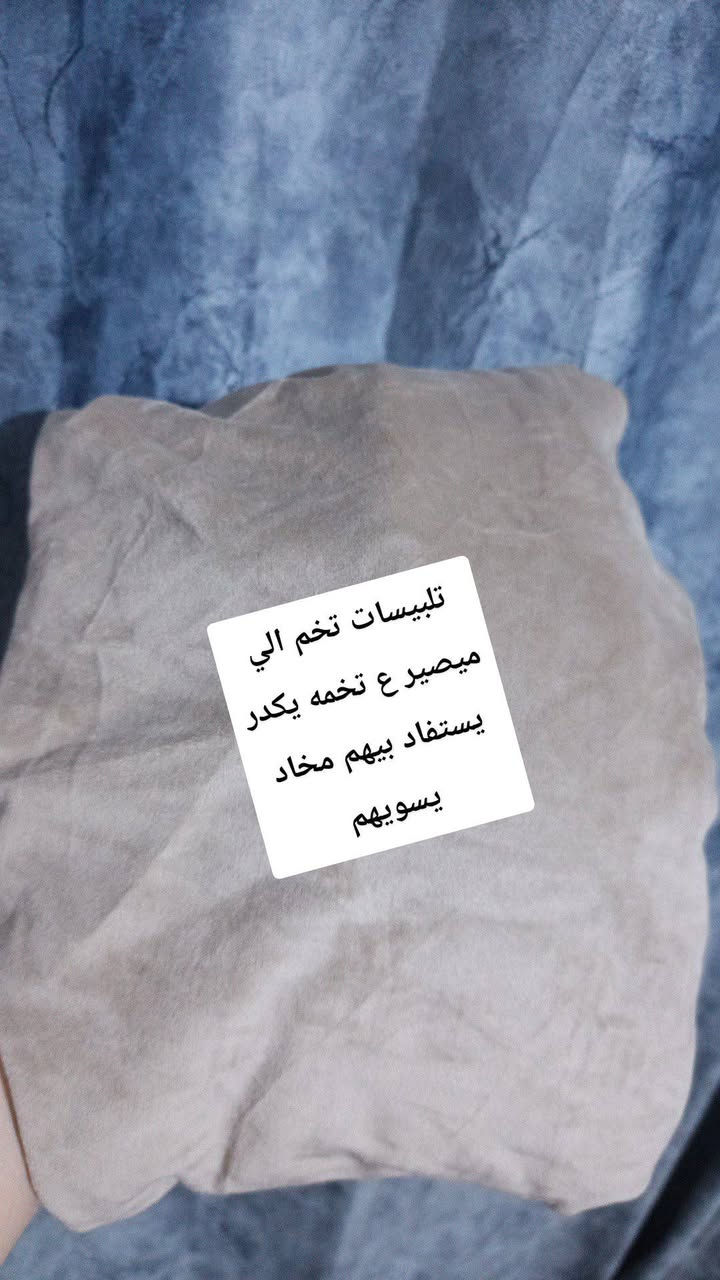 تلبيسات تخم الي
ميصير ع تخمه يكدر
يستفاد بيهم مخاد
يسويهم